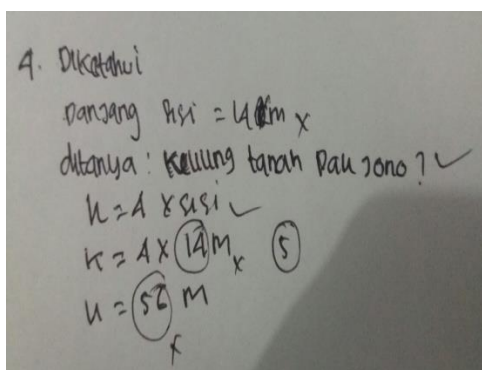 4. Diketahui
Panjang sisi = 14 m x
ditanya : Keliling tanah Pak Jono ? ✓
K = 4 x sisi ✓
K = 4 x 14 m x 5
K = 52 m
x